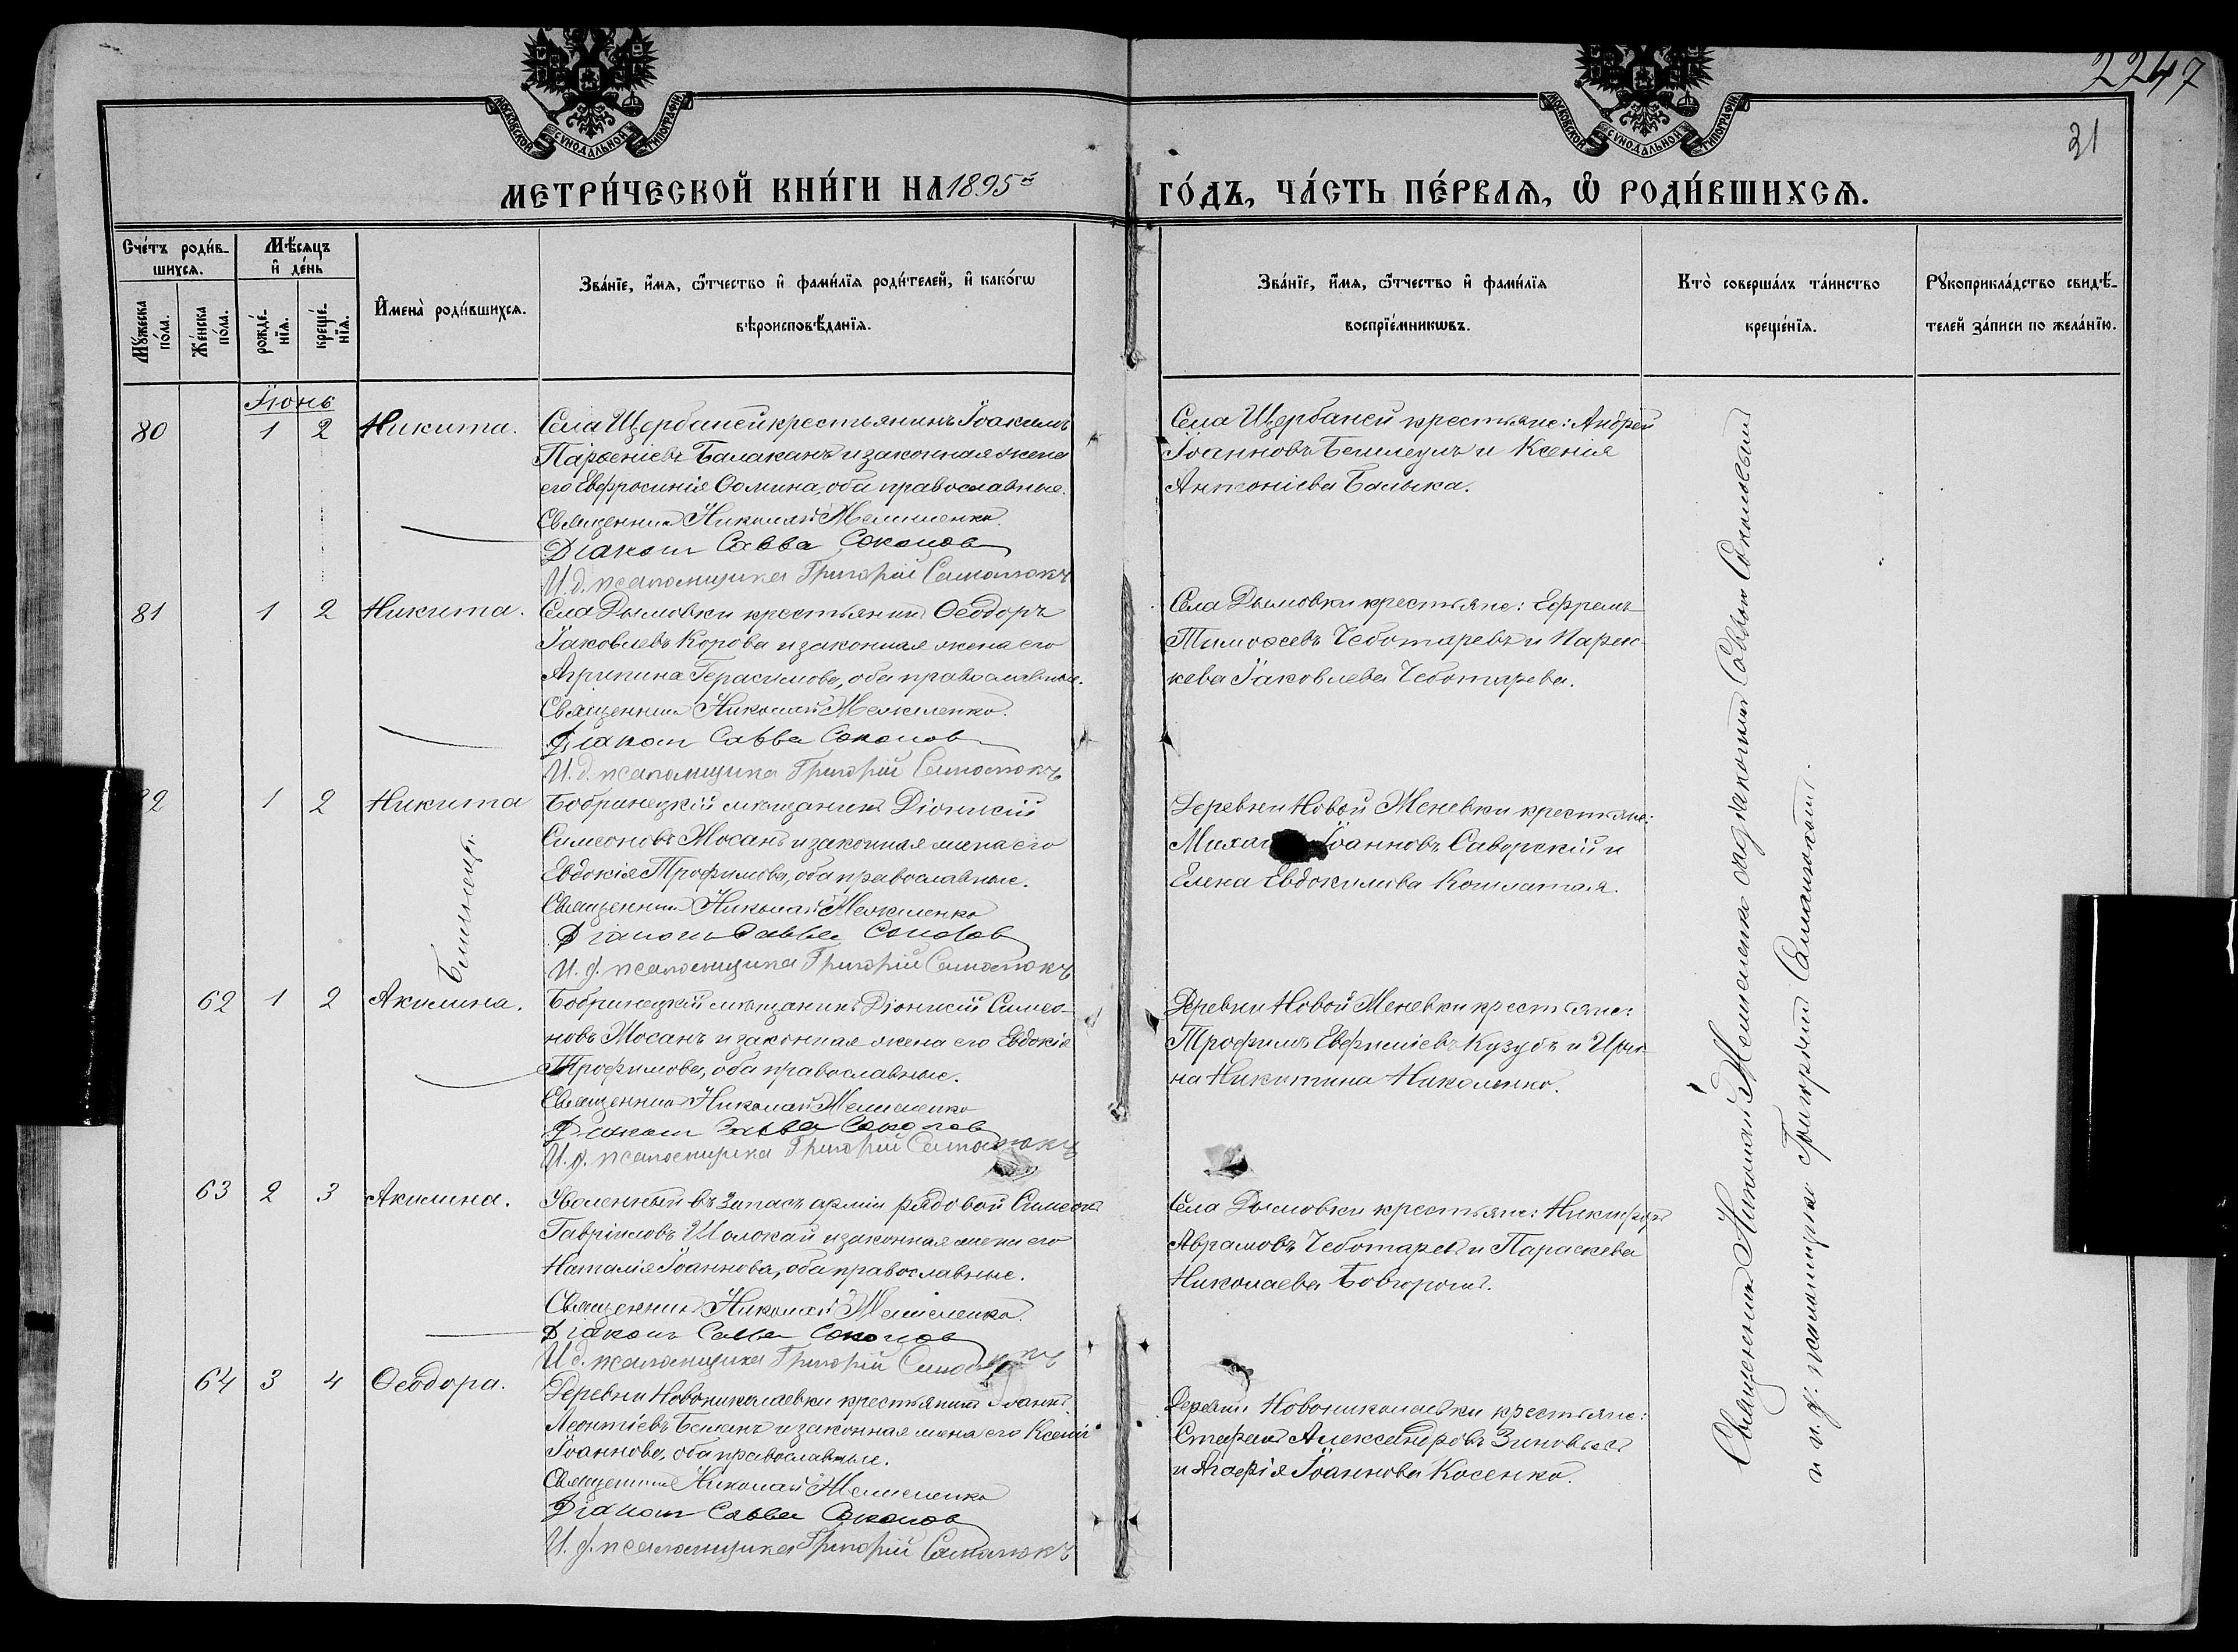 2247
31
МОСКОВСКОЙ СѴНОДАЛЬНОЙ ТИПОГРАФІИ
МОСКОВСКОЙ СѴНОДАЛЬНОЙ ТИПОГРАФІИ
МЕТРИ́ЧЕСКОЙ КНИ́ГИ НА 1895й ГО́ДЪ, ЧА́СТЬ ПЕ́РВАЯ, Ѿ РОДИ́ВШИХСЯ.
Счетъ роди́в-
шихся.
Му́жеска по́ла.
Же́нска по́ла.
Мѣ́сяцъ
и де́нь
рожде́-
нїя.
креще́-
нїя.
Имена̀ роди́вшихся.
Зва́нїе, и́мя, ѻ́тчество и фами́лїя роди́телей, и како́гѡ
вѣроисповѣ́данїя.
Зва́нїе, и́мя, ѻ́тчество и фами́лїя
воспрїе́мникѡвъ.
Кто̀ соверша́лъ та́инство
креще́нїя.
Рꙋкоприкла́дство свидѣ́-
телей за́писи по жела́нїю.
Іюнь
80 1 2 Никита.
Села Щербаней крестьянинъ Іоакимъ
Парѳеніевъ Балаканъ и законная жена
его Евфросинія Ѳомина, оба православные.
Священник Николай
Діакон Савва Соколов
И. д. псаломщика Григорій
Села Щербаней крестьяне: Андрей
Іоанновъ и Ксенія
Антоніева Балыка.
81 1 2 Никита.
Села Дымовки крестьянин Ѳеодоръ
Іаковлевъ Корова и законная жена его
Агрипина Герасимова, оба православные.
Священник Николай
Діакон Савва Соколов
И. д. псаломщика Григорій
Села Дымовки крестьяне: Ефремъ
Тимоѳеевъ Чеботаревъ и Парас-
кева Іаковлева Чеботарева.
82 1 2 Никита
Близнецы.
Бобринецкій мѣщанинъ Діонисій
Симеоновъ Мосанъ и законная жена его
Евдокія Трофимова, оба православные.
Священник Николай
Діаконъ Савва Соколов
И. д. псаломщика Григорій
Деревни Новой Меневки крестьяне:
Михаи Іоанновъ Саворскій и
Елена Евдокимова Кошлатая.
62 1 2 Акилина.
Бобринецкій мѣщанинъ Діонисій Симео-
новъ Мосанъ и законная жена его Евдокія
Трофимова, оба православные.
Священник Николай
Діакон Савва Соколов
И. д. псаломщика Григорій
Деревни Новой Меневки крестьяне:
Трофимъ Евфиміевъ Кузубъ и Ири-
на Никитина Николенко.
63 2 3 Акилина.
Уволенный въ запасъ арміи рядовой Симеон
Гавріиловъ Шолокай и законная жена его
Наталія Іоаннова, оба православные.
Священник Николай
Діаконъ Савва Соколов
И. д. псаломщика Григорій
Села Дымовки крестьяне: Никифоръ
Аврамовъ Чеботаревъ и Параскева
Николаева
64 3 4 Ѳеодора.
Деревни Новониколаевки крестьянин Іоаннъ
Леонтіевъ и законная жена его Ксенія
Іоаннова, оба православные.
Священник Николай
Діакон Савва Соколов
И. д. псаломщика Григорій
Деревни Новониколаевки крестьяне:
Стефанъ Александровъ
и Агафія Іоаннова Косенко.
Священник Николай съ діаконом Саввою
и и. д. псаломщика Григоріем